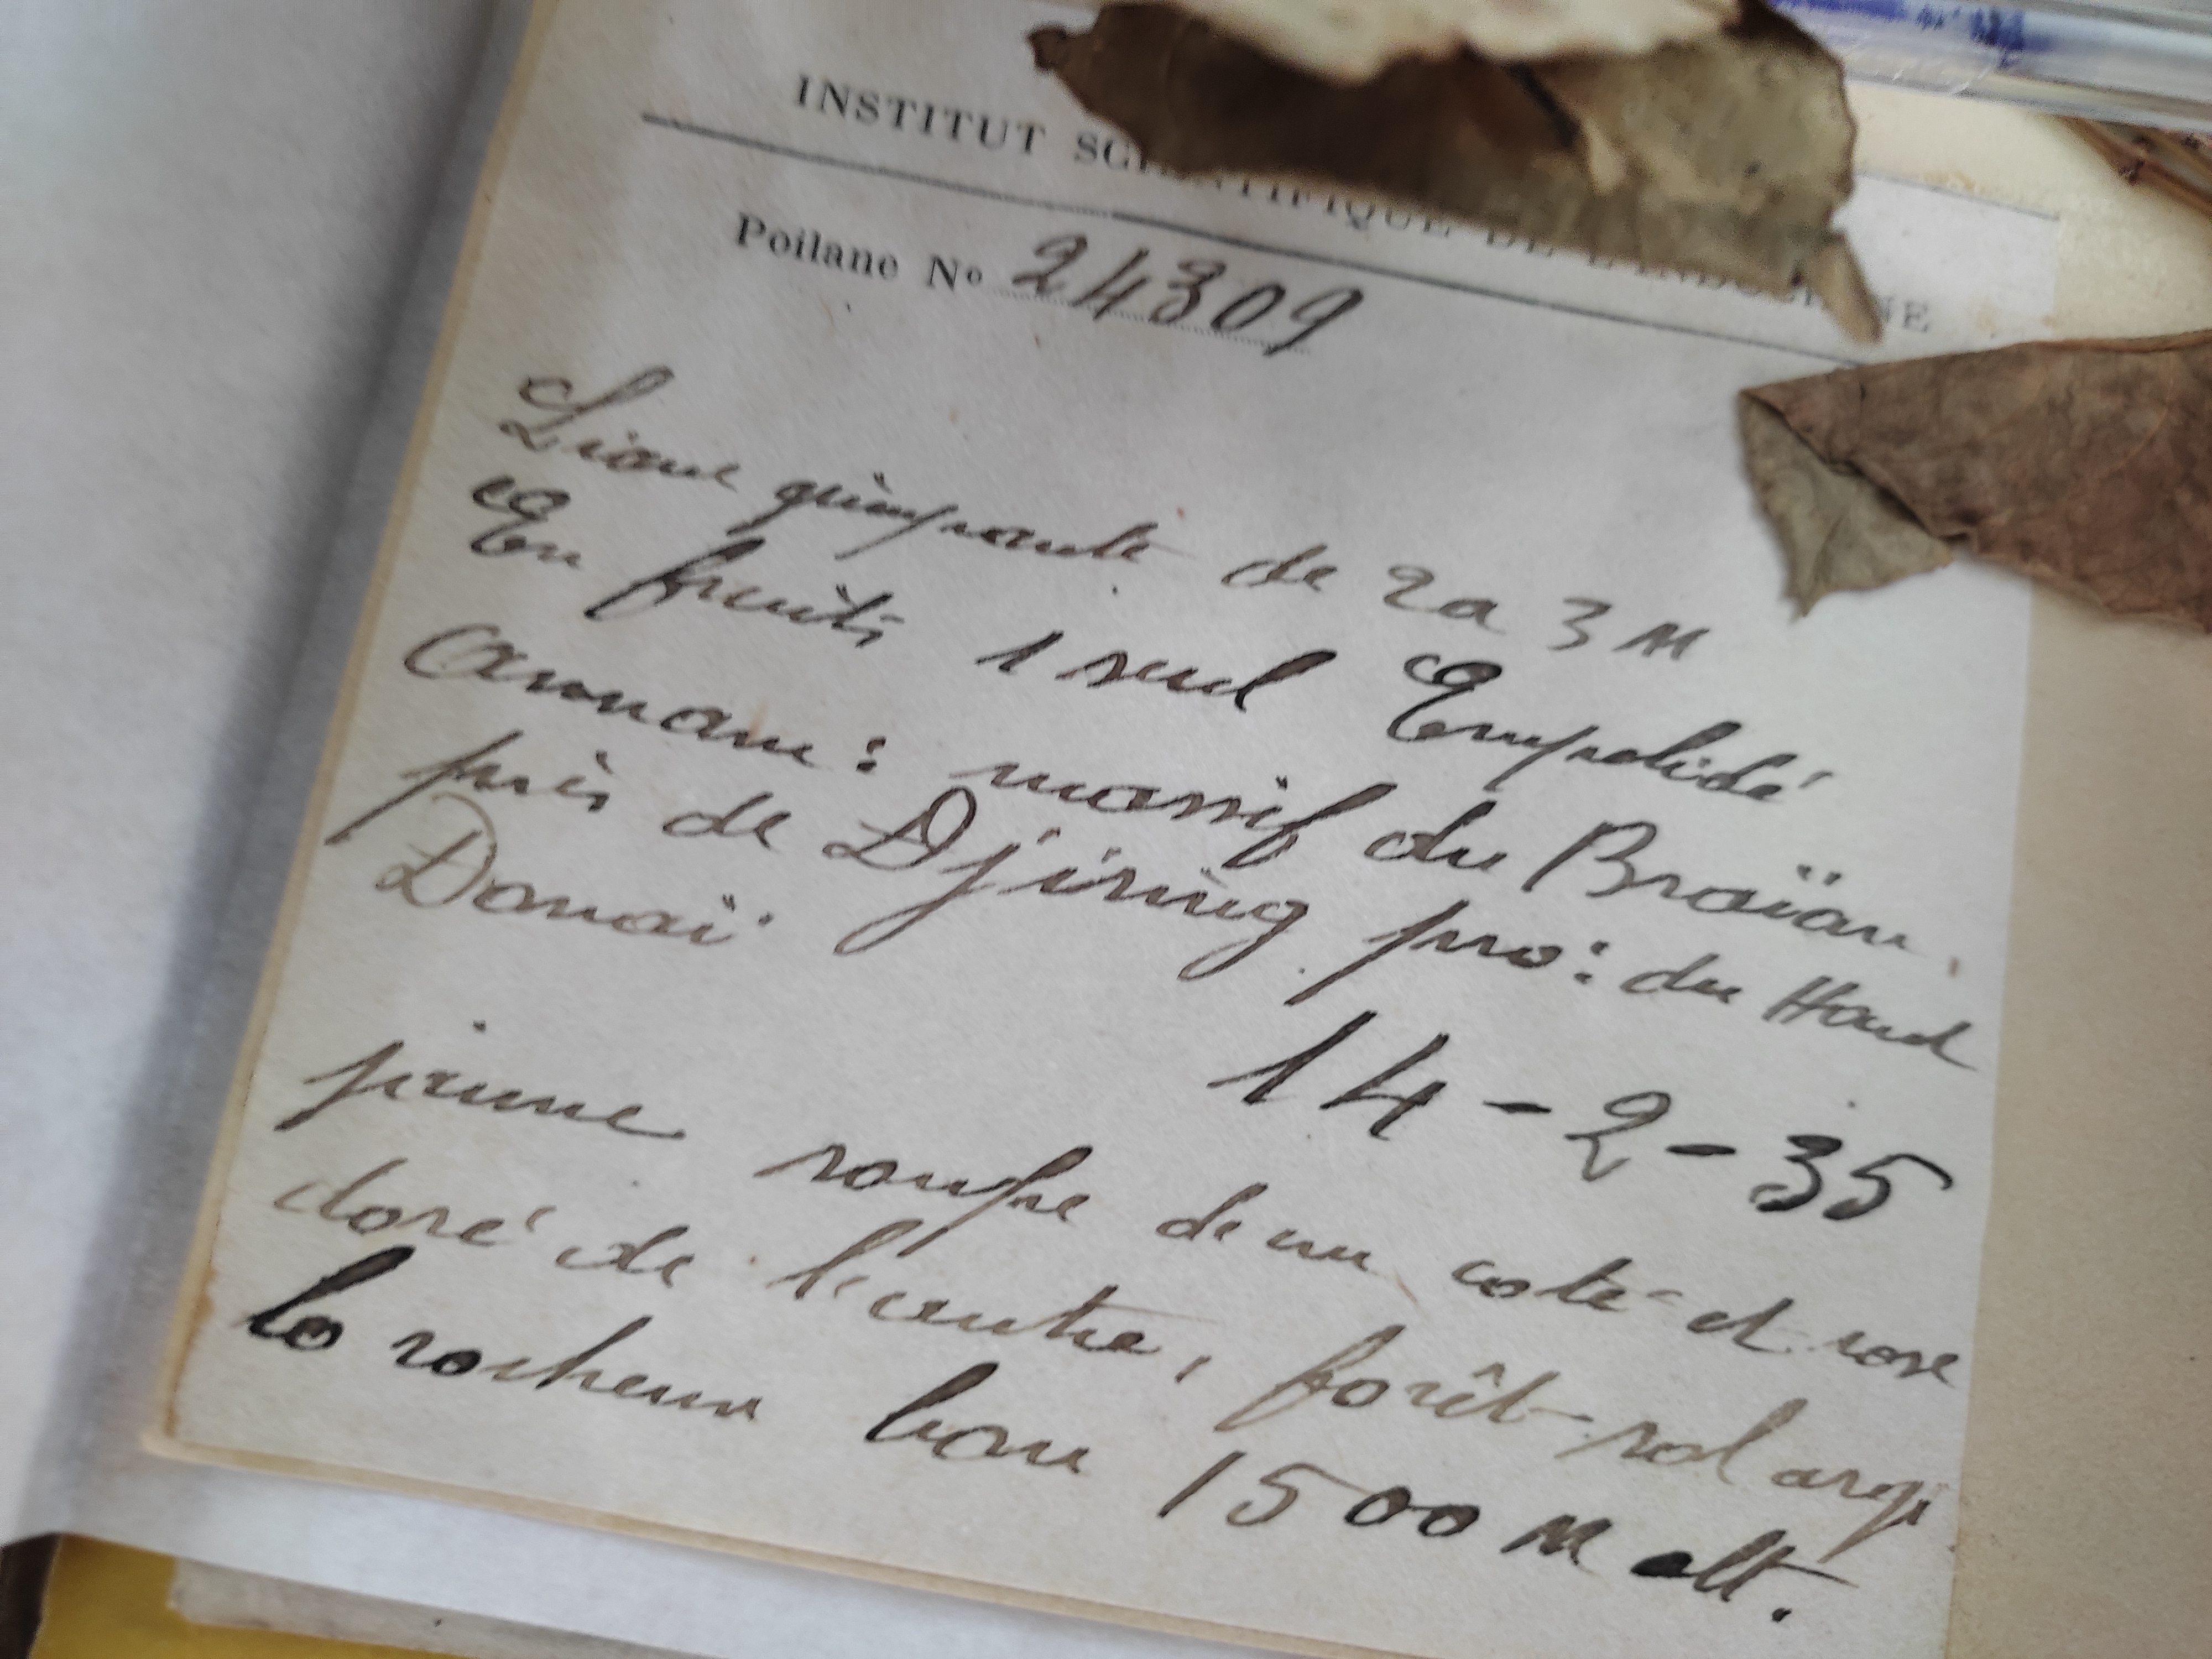 INSTITUT SCIENTIFIQUE DE L'INDOCHINE
Poilane Nº 24309
Liane grimpante de 2 a 3 M
En fruits 1 seul Empalidé
Annam : massif du Braïan
près de Djiring pro : du Haud
Donaï
14 - 2 - 35
jaune rouge de un coté et rose
doré de l'autre, forêt sol argi
lo rocheux 1500 M alt.